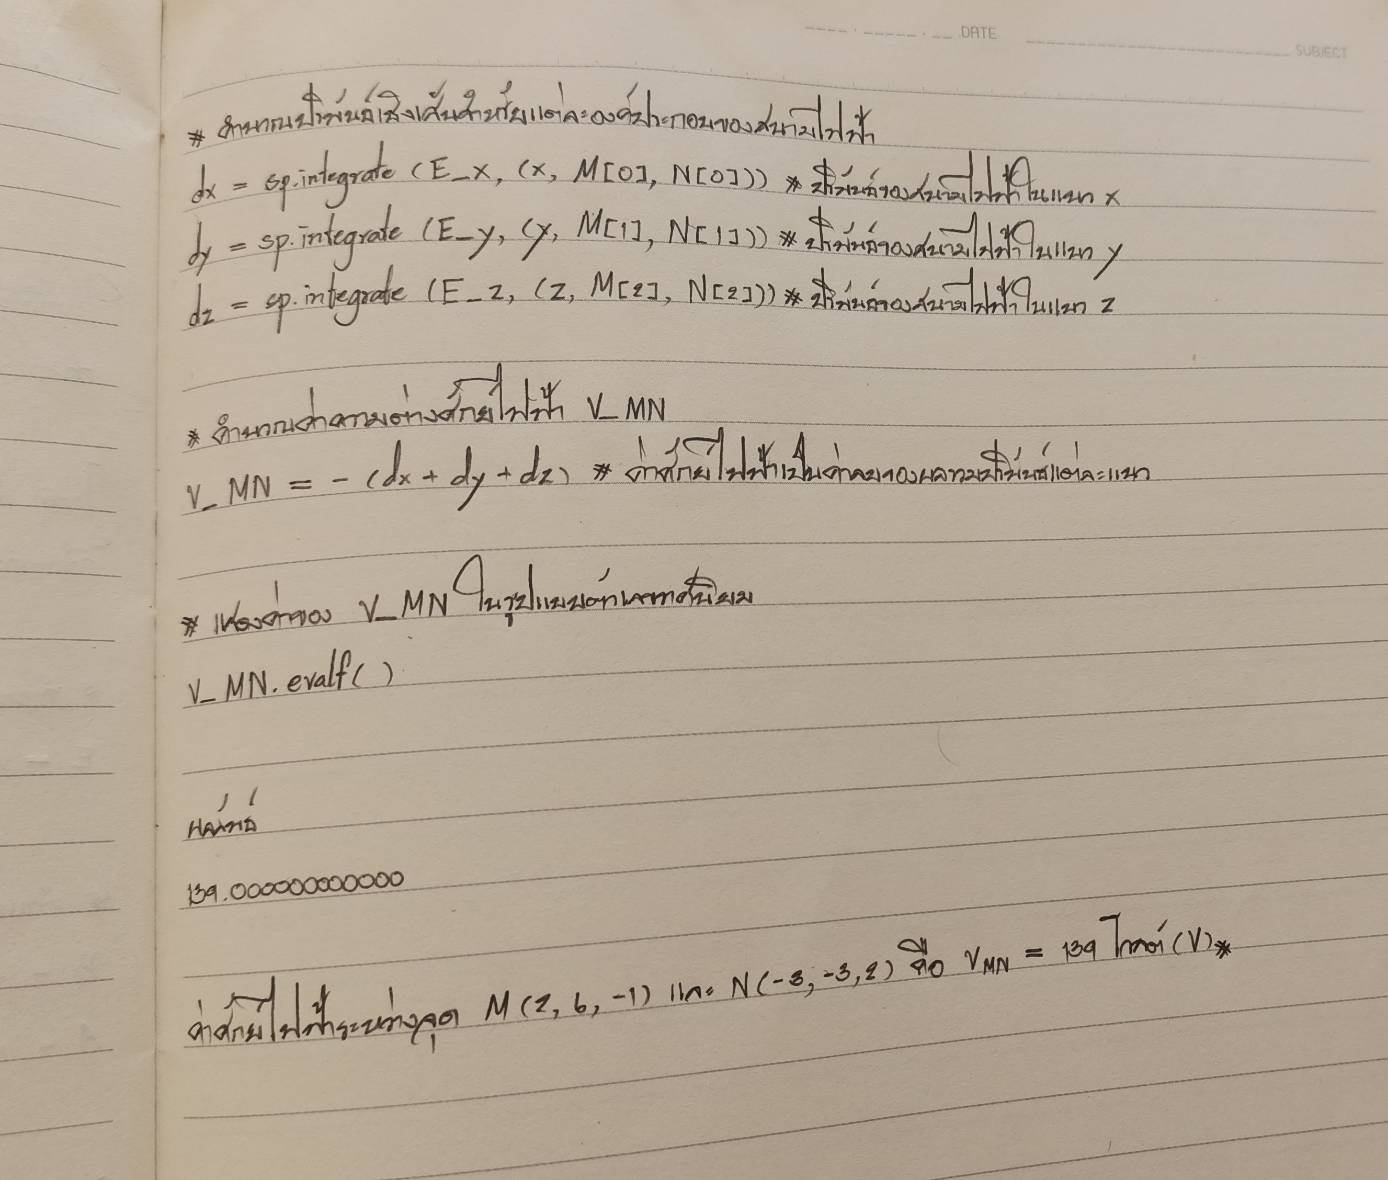 DATE
SUBJECT
* คำนวณปริพันธ์เชิงเส้นสำหรับแต่ละองค์ประกอบของสนามไฟฟ้า
dx = sp.integrate (E_x, (x, M[0], N[0])) * ปริพันธ์ของสนามไฟฟ้าในแกน x
dy = sp.integrate (E_y, (y, M[1], N[1])) * ปริพันธ์ของสนามไฟฟ้าในแกน y
dz = sp.integrate (E_z, (z, M[2], N[2])) * ปริพันธ์ของสนามไฟฟ้าในแกน z
* คำนวณค่าความต่างศักย์ไฟฟ้า V_MN
V_MN = - (dx + dy + dz) * ค่าศักย์ไฟฟ้าเป็นค่าลบของผลรวมปริพันธ์แต่ละแกน
* แสดงค่าของ V_MN ในรูปแบบค่าทศนิยม
V_MN.evalf()
ผลลัพธ์
139.000000000000
ค่าศักย์ไฟฟ้าระหว่างจุด M(2, 6, -1) และ N(-3, -3, 2) คือ V_MN = 139 โวลต์ (V) *